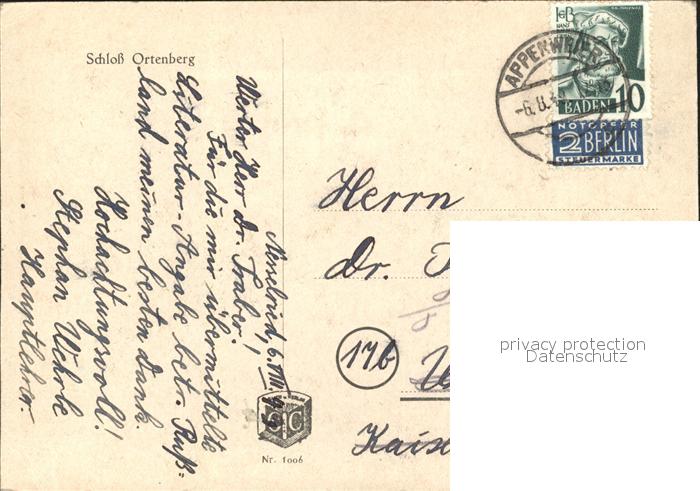 Schloß Ortenberg
Nesselried, 6.VIII.49
Werter Herr Dr. Traber!
Für die mir übermittelte
Literatur-Angabe betr. Ruß=
land meinen besten Dank.
Hochachtungsvoll!
Stephan Wehrle
Hauptlehrer.
Nr. 1006
APPENWEIER
-6.8.49
BADEN 10
NOTOPFER
2 BERLIN
STEUERMARKE
Herrn
Dr. T
17b
Kais
privacy protection
Datenschutz